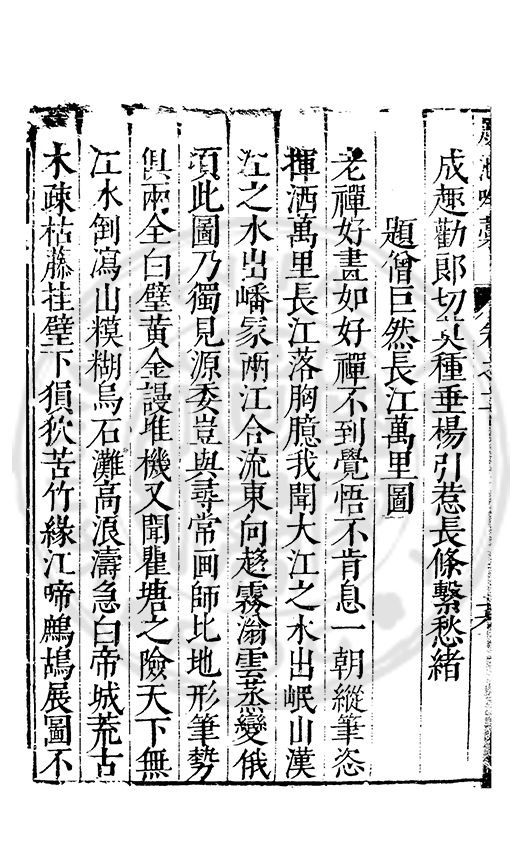 成趣勸郎切莫種垂楊引惹長條繫愁緒
題僧巨然長江萬里圖
老禪好畫如好禪不到覺悟不肯息一朝縱筆恣
揮洒萬里長江落胸臆我聞大江之水出岷山漢
江之水出嶓冢兩江合流東向趨霧滃雲蒸變俄
頃此圖乃獨見源委豈與尋常画師比地形筆勢
俱兩全白璧黃金謾堆機又聞瞿塘之險天下無
江水倒瀉山糢糊烏石灘高浪濤急白帝城荒古
木疎枯藤挂壁下猿狖苦竹緣江啼鷓鴣展圖不